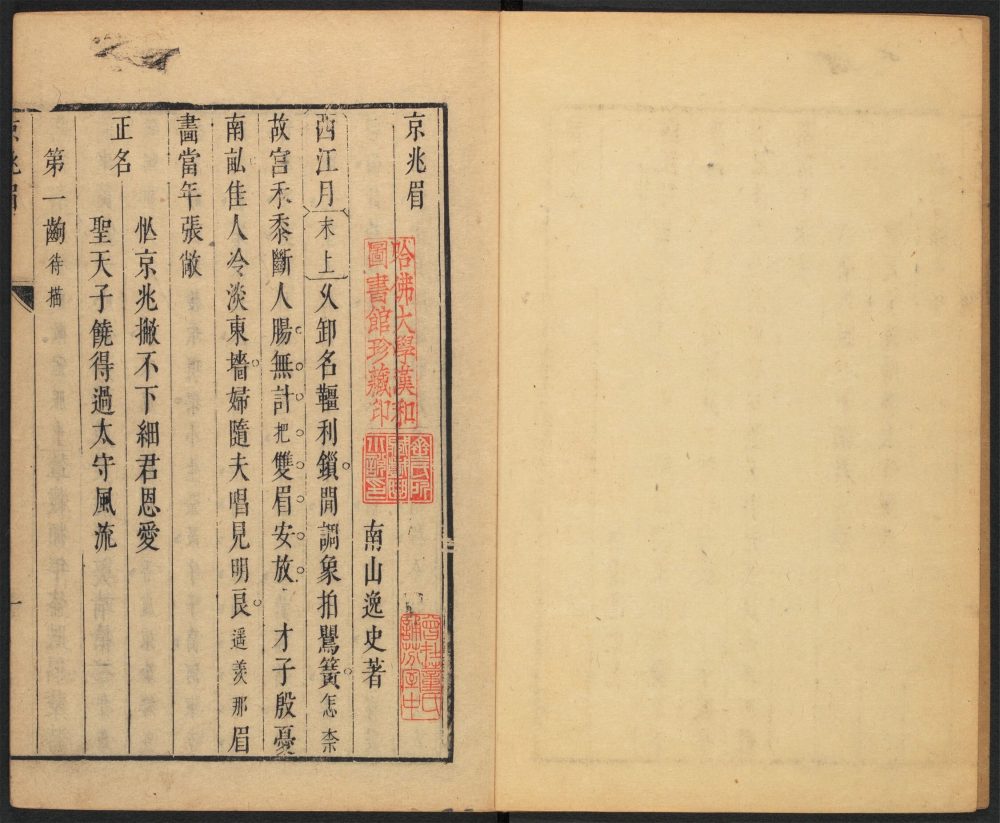 京兆眉
哈佛大學漢和
圖書館珍藏印
曾在董氏
誦芬室中
南山逸史著
西江月 末上 乆卸名韁利鎖閒調象拍鸎簧怎奈
故宫禾黍斷人腸無計把雙眉安放 才子殷憂
南畝佳人冷淡東墻婦隨夫唱見明良遥羡那眉
畵當年張敞
正名
忙京兆撇不下細君恩愛
聖天子饒得過太守風流
第一齣待描
京兆眉
一